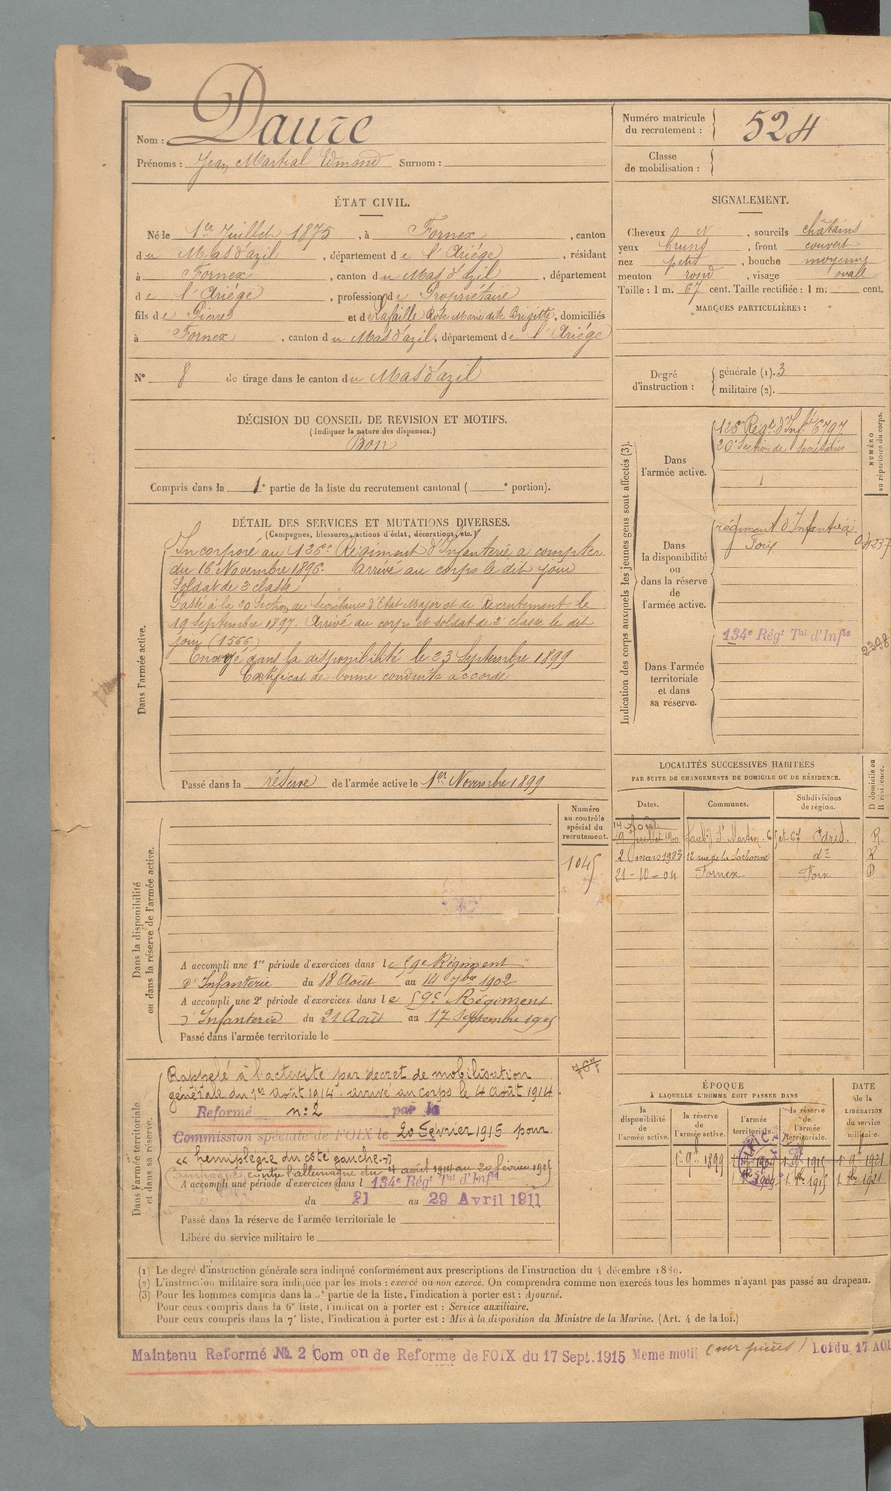 Nom : Daure
Prénoms : Jean Martial Edmond Surnom :
Numéro matricule du recrutement : 524
Classe de mobilisation :
ÉTAT CIVIL.
Né le 1er Juillet 1875, à Fornex, canton
du Mas d'azil, département de l'Ariége, résidant
à Fornex, canton du Mas d'azil, département
de l'Ariége, profession de Propriétaire
fils de Pierre et de Lafaille Rose Marie dite Brigitte, domiciliés
à Fornex, canton du Mas d'azil, département de l'Ariége
N° 8 de tirage dans le canton du Mas d'azil
SIGNALEMENT.
Cheveux N, sourcils châtains
yeux bruns, front couvert
nez petit, bouche moyenne
menton rond, visage ovale
Taille : 1 m. 67 cent. Taille rectifiée : 1 m. cent.
MARQUES PARTICULIÈRES :
Degré d'instruction : générale (1). 3
militaire (2).
DÉCISION DU CONSEIL DE REVISION ET MOTIFS.
(Indiquer la nature des dispenses.)
Bon
Compris dans la 1e partie de la liste du recrutement cantonal ( e portion).
DÉTAIL DES SERVICES ET MUTATIONS DIVERSES.
(Campagnes, blessures, actions d'éclat, décorations, etc.)
Dans l'armée active.
Incorporé au 126e Régiment d'Infanterie a compter
du 16 Novembre 1896. Arrivé au corps le dit jour
Soldat de 2 classe
Passé à la 20 Section de Secrétaires d'Etat Major et de Recrutement le
19 Septembre 1897. Arrivé au corps et soldat de 2e classe le dit
jour (1566)
Envoyé dans la disponibilité le 23 Septembre 1899
Certificat de bonne conduite accordé
Passé dans la réserve de l'armée active le 1er Novembre 1899
Indication des corps auxquels les jeunes gens sont affectés (3).
NUMÉRO au répertoire du corps.
Dans l'armée active.
126e Régt d'Inft 6797
20e Section de Secrétaires
Dans la disponibilité ou dans la réserve de l'armée active.
régiment d'Infanterie
Foix
Dans l'armée territoriale et dans sa réserve.
134e Régt Tal d'Infie
2398
LOCALITÉS SUCCESSIVES HABITÉES
PAR SUITE DE CHANGEMENTS DE DOMICILE OU DE RÉSIDENCE.
Dates. Communes. Subdivisions de région. D domicile ou R résidence.
2 mars 1903 12 rue de la Sorbonne do R
21-10-04 Fornex Foix D
Dans la disponibilité ou dans la réserve de l'armée active.
Numéro au contrôle spécial du recrutement.
1045
A accompli une 1re période d'exercices dans le 59e Régiment
d'Infanterie du 18 Août au 14 7bre 1902
A accompli une 2e période d'exercices dans le 59e Régiment
d'Infanterie du 21 Août au 17 Septembre 1905
Passé dans l'armée territoriale le
Dans l'armée territoriale et dans sa réserve.
Rappelé à l'activité par décret de mobilisation
générale du 1er août 1914. arrivé au corps le 4 Août 1914.
Reformé n: 2 par la
Commission spéciale de FOIX le 20 Fevrier 1915 pour
"hemiplegie du côté gauche."
contre l'allemagne du 4 août 1914 au 20 février 1915
A accompli une période d'exercices dans l 134e Régt Tal d'Infie
du 21 au 29 Avril 1911
Passé dans la réserve de l'armée territoriale le
Libéré du service militaire le
ÉPOQUE
À LAQUELLE L'HOMME DOIT PASSER DANS
la disponibilité de l'armée active. la réserve de l'armée active. l'armée territoriale. la réserve de l'armée territoriale.
DATE de la LIBÉRATION du service militaire.
(1) Le degré d'instruction générale sera indiqué conformément aux prescriptions de l'instruction du 4 décembre 1889.
(2) L'instruction militaire sera indiquée par les mots : exercé ou non exercé. On comprendra comme non exercés tous les hommes n'ayant pas passé au drapeau.
(3) Pour les hommes compris dans la 5e partie de la liste, l'indication à porter est : Ajourné.
Pour ceux compris dans la 6e liste, l'indication à porter est : Service auxiliaire.
Pour ceux compris dans la 7e liste, l'indication à porter est : Mis à la disposition du Ministre de la Marine. (Art. 4 de la loi.)
Maintenu Reformé № 2 Com on de Reforme de FOIX du 17 Sept. 1915 Meme motif (sur pièces) Loi du 17 AOU